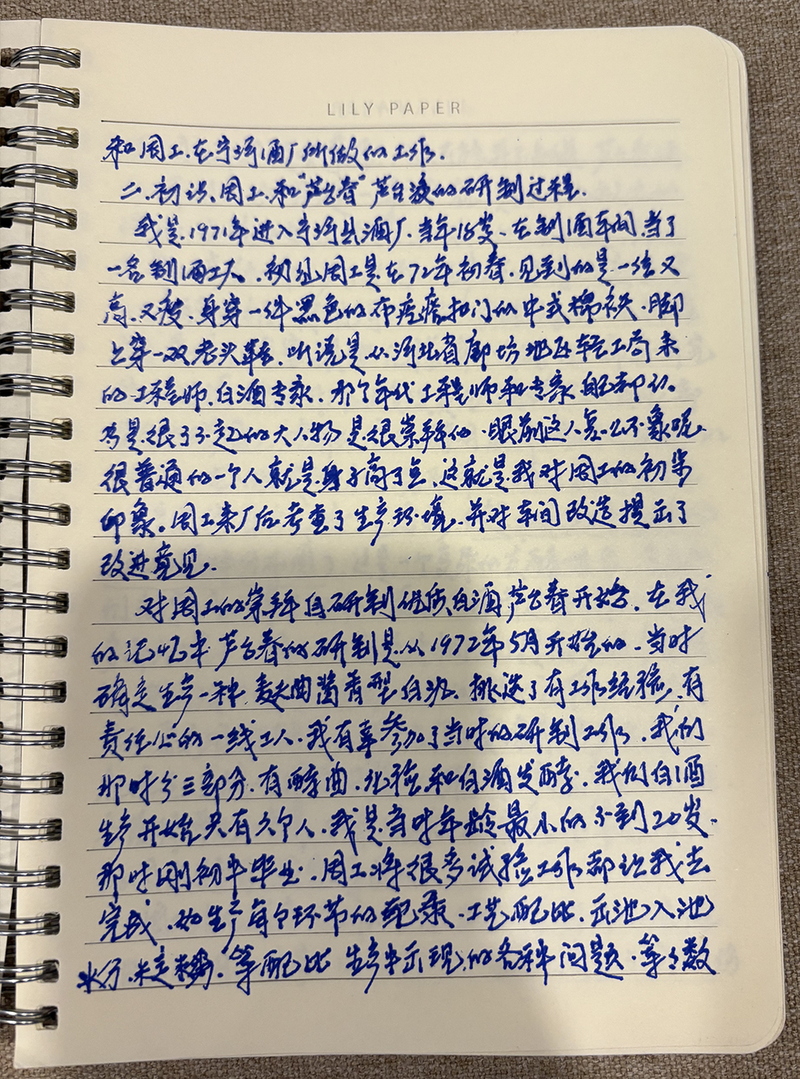 LILY PAPER
和周工.在宁河酒厂所做的工作.
二.初识.周工.和“芦台春”芦台液的研制过程.
我是.1971年进入宁河县酒厂.当年18岁.在制酒车间.当了
一名制酒工人.初见周工是在72年初春.见到的是一位又
高.又瘦.身穿一件黑色的布疙瘩扣门的中式棉袄.脚
上穿一双老头鞋.听说是从河北省廊坊地区轻工局来
的工程师.白酒专家.那个年代工程师和专家
是很了不起的大人物是很崇拜的.眼前这人怎么不象呢.
很普通的一个人就是.身子高了点.这就是我对周工的初步
印象.周工来厂后.考查了生产环境.并对车间改造提出了
改进意见.
对周工的崇拜自研制优质白酒.芦台春开始.在我
的记忆中芦台春的研制是.从1972年5月开始的.当时
确定生产一种.麸曲酱香型白酒.挑选了有工作经验.有
责任心的一线工人.我有幸参加了当时的研制工作.我们
那时分三部分.有酵曲.化验和白酒发酵.我们白酒
生产开始共有六个人.我是.当时年龄最小的不到20岁.
那时刚初中毕业.周工将很多试验工作都让我去
完成.如生产每个环节的配录.工艺配比.出池入池
水分.等配比生产中出现.的各种问题.等等数